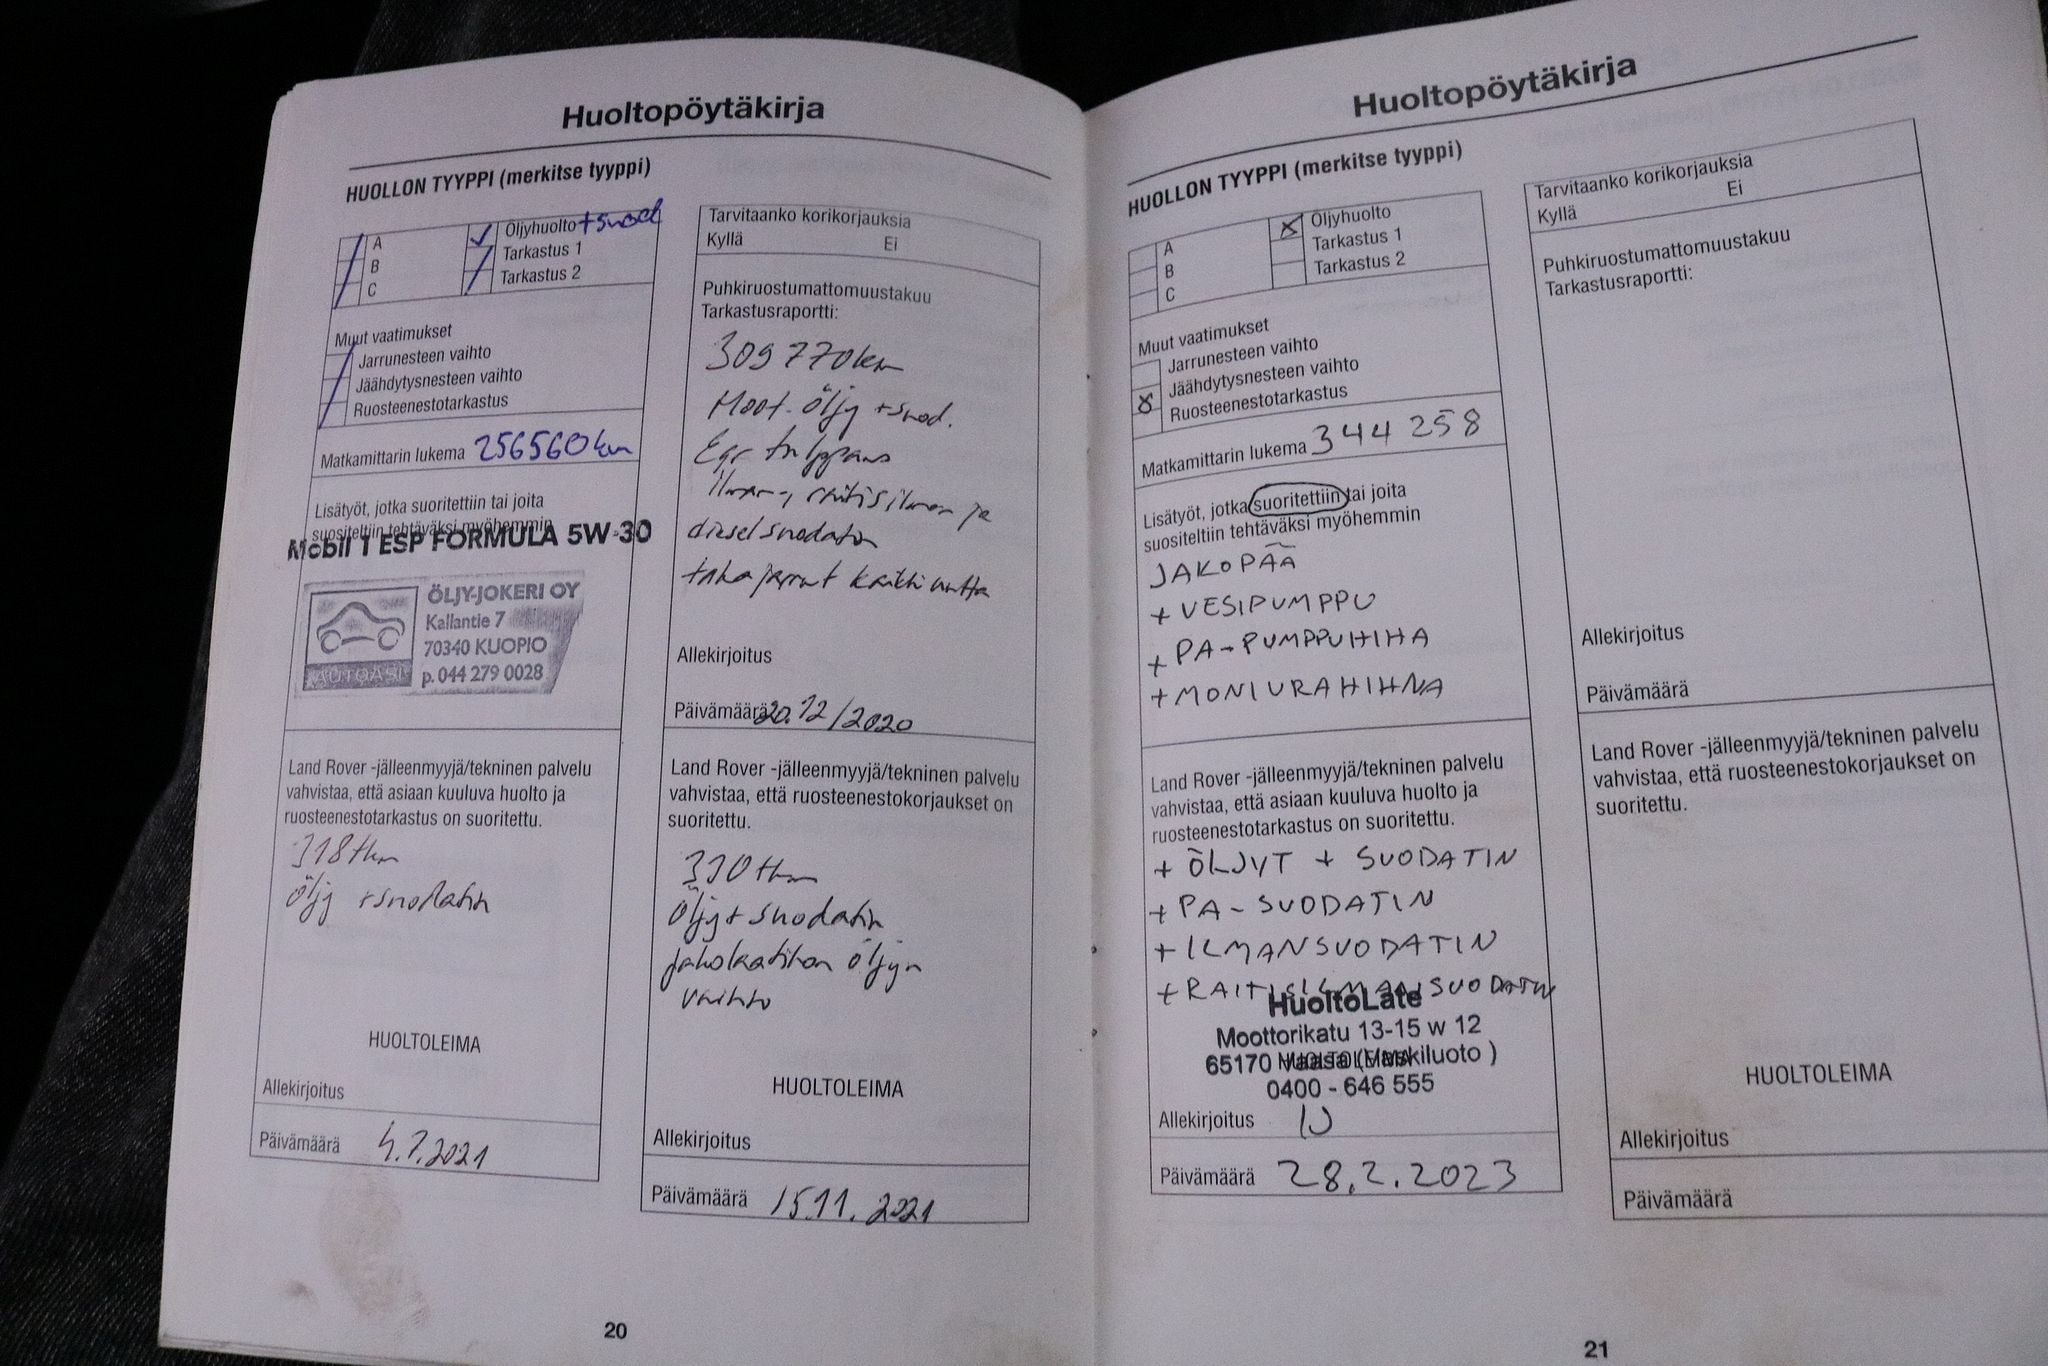 Huoltopöytäkirja
HUOLLON TYYPPI (merkitse tyyppi)
A
B
C
Öljyhuolto +suod
Tarkastus 1
Tarkastus 2
Muut vaatimukset
Jarrunesteen vaihto
Jäähdytysnesteen vaihto
Ruosteenestotarkastus
Matkamittarin lukema 256560 km
Lisätyöt, jotka suoritettiin tai joita
suositeltiin tehtäväksi myöhemmin
Mobil 1 ESP FORMULA 5W-30
ÖLJY-JOKERI OY
Kallantie 7
70340 KUOPIO
AUTOASI
p. 044 279 0028
Land Rover -jälleenmyyjä/tekninen palvelu
vahvistaa, että asiaan kuuluva huolto ja
ruosteenestotarkastus on suoritettu.
318tkm
öljy +suodatin
HUOLTOLEIMA
Allekirjoitus
Päivämäärä 4.7.2021
Tarvitaanko korikorjauksia
Kyllä Ei
Puhkiruostumattomuustakuu
Tarkastusraportti:
309770km
Moot. öljy +suod.
Egr tulppaus
ilman-, raitisilman ja
dieselsuodatin
takajarrut kaikki uutta
Allekirjoitus
Päivämäärä 20.12/2020
Land Rover -jälleenmyyjä/tekninen palvelu
vahvistaa, että ruosteenestokorjaukset on
suoritettu.
330tkm
Öljy+suodatin
jakolaatikon öljyn
vaihto
HUOLTOLEIMA
Allekirjoitus
Päivämäärä 15.11.2021
20
Huoltopöytäkirja
HUOLLON TYYPPI (merkitse tyyppi)
A
B
C
Öljyhuolto
Tarkastus 1
Tarkastus 2
Muut vaatimukset
Jarrunesteen vaihto
Jäähdytysnesteen vaihto
Ruosteenestotarkastus
Matkamittarin lukema 344 258
Lisätyöt, jotka suoritettiin tai joita
suositeltiin tehtäväksi myöhemmin
JAKOPÄÄ
+ VESIPUMPPU
+ PA-PUMPPUHIHA
+ MONIURAHIHNA
Land Rover -jälleenmyyjä/tekninen palvelu
vahvistaa, että asiaan kuuluva huolto ja
ruosteenestotarkastus on suoritettu.
+ ÖLJYT + SUODATIN
+ PA-SUODATIN
+ ILMANSUODATIN
+ RAITISILMANSUODATIN
HuoltoLate
Moottorikatu 13-15 w 12
65170 Vaasa (Vaskiluoto )
HUOLTOLEIMA
0400 - 646 555
Allekirjoitus
Päivämäärä 28.2.2023
Tarvitaanko korikorjauksia
Kyllä Ei
Puhkiruostumattomuustakuu
Tarkastusraportti:
Allekirjoitus
Päivämäärä
Land Rover -jälleenmyyjä/tekninen palvelu
vahvistaa, että ruosteenestokorjaukset on
suoritettu.
HUOLTOLEIMA
Allekirjoitus
Päivämäärä
21